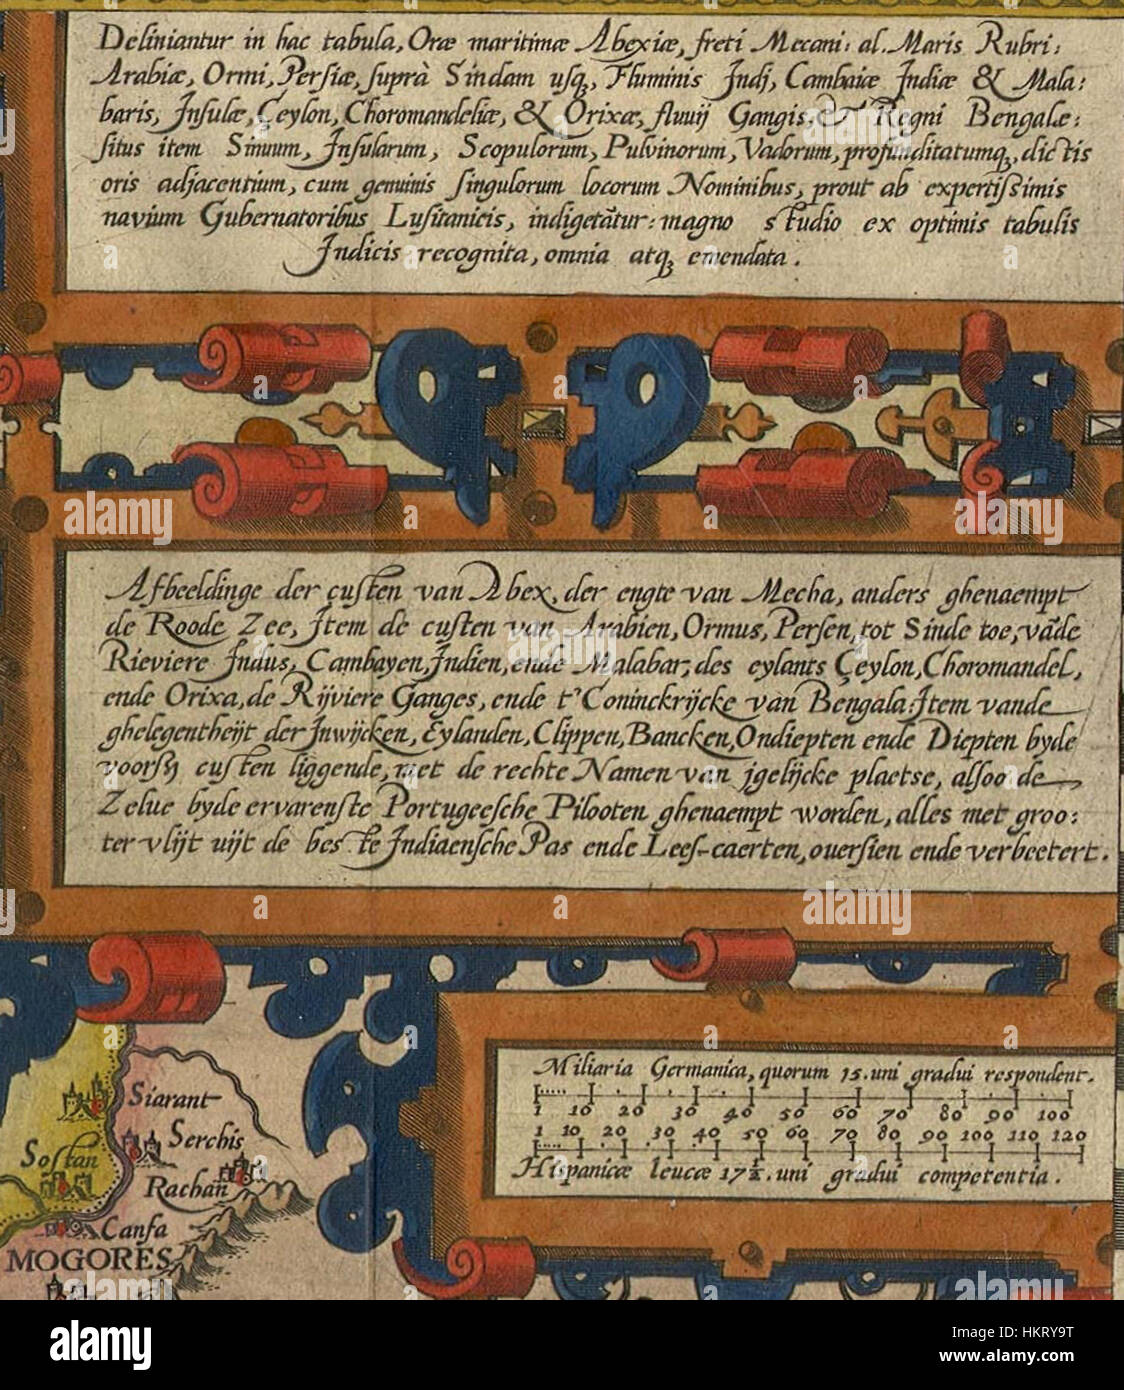 Deliniantur in hac tabula, Oræ maritimæ Abexiæ, freti Mecani: al. Maris Rubri:
Arabiæ, Ormi, Persiæ, suprà Sindam usq₃, Fluminis Indj, Cambaicæ Indiæ & Mala:
baris, Insulæ, Çeylon, Choromandeliæ, & Orixæ, fluuij Gangis, & Regni Bengalæ:
situs item Sinuum, Insularum, Scopulorum, Pulvinorum, Vadorum, profunditatumq₃, dictis
oris adjacentium, cum genuinis singulorum locorum Nominibus, prout ab expertissimis
navium Gubernatoribus Lusitanicis, indigetãtur: magno studio ex optimis tabulis
Indicis recognita, omnia atq₃ emendata.
Afbeeldinge der custen van Abex, der engte van Mecha, anders ghenaempt
de Roode Zee, Item de custen van Arabien, Ormus, Persen, tot Sinde toe, vãde
Rieviere Indus, Cambayen, Indien, ende Malabar, des eylants Çeylon, Choromandel,
ende Orixa, de Rijviere Ganges, ende t'Coninckrijcke van Bengala: Item vande
ghelegentheijt der Inwijcken, Eylanden, Clippen, Bancken, Ondiepten ende Diepten byde
voorsʒ custen liggende, met de rechte Namen van jgelijcke plaetse, alsoo de
Zelue byde ervarenste Portugeesche Pilooten ghenaempt worden, alles met groo:
ter vlijt uijt de beste Indiaensche Pas ende Lees-caerten, ouersien ende verbeetert.
Miliaria Germanica, quorum 15. uni gradui respondent.
1 10 20 30 40 50 60 70 80 90 100
1 10 20 30 40 50 60 70 80 90 100 110 120
Hispanicæ leucæ 17½. uni gradui competentia.
Siarant
Serchis
Sostan
Rachan
Cansa
MOGORES
alamy
Image ID: HKRY9T
www.alamy.com